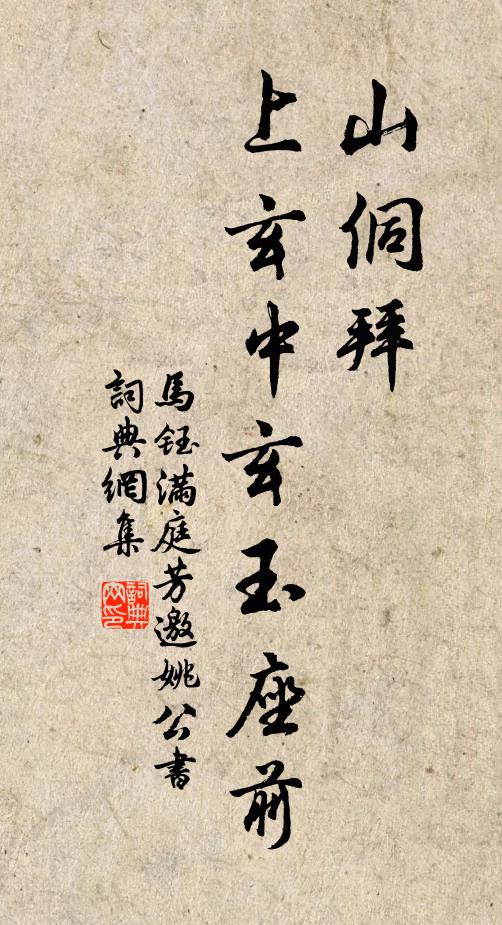 山侗拜
上玄中玄玉座前
馬鈺滿庭芳邀姚公書
詞典網集
詞典網印